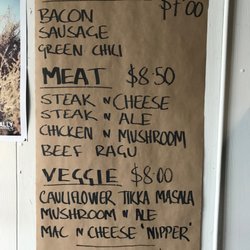 $7.00
BACON
SAUSAGE
GREEN CHILI
MEAT $8.50
STEAK N CHEESE
STEAK N ALE
CHICKEN N MUSHROOM
BEEF RAGU
VEGGIE $8.00
CAULIFLOWER TIKKA MASALA
MUSHROOM N ALE
MAC N CHEESE 'NIPPER'